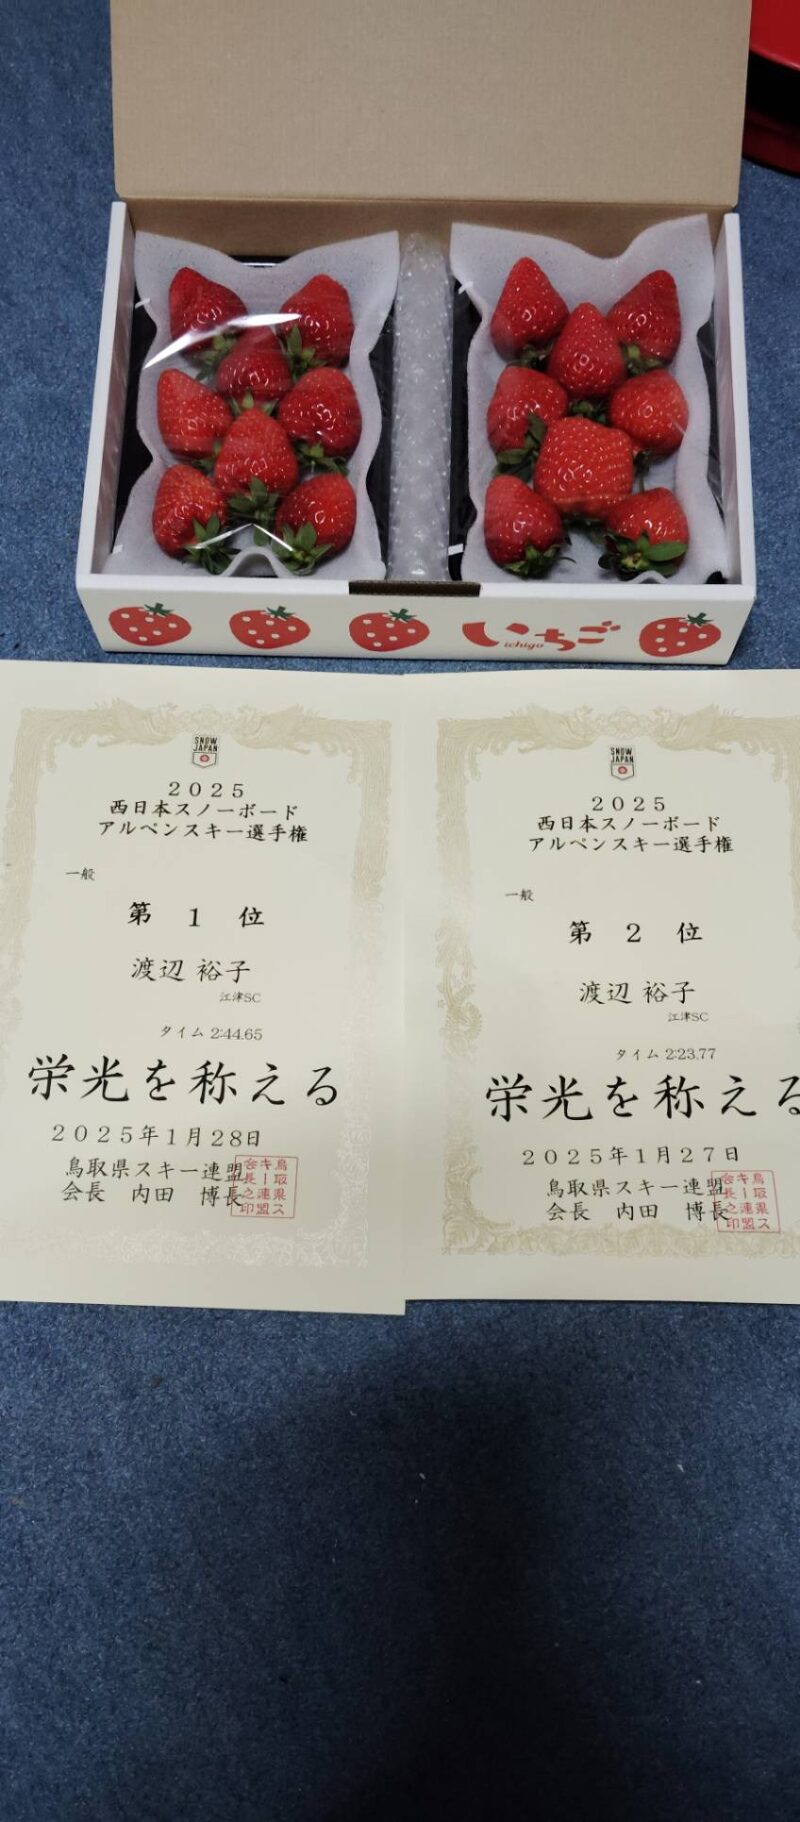 いちご
ichigo
SNOW
JAPAN
2025
西日本スノーボード
アルペンスキー選手権
一般
第 1 位
渡辺 裕子
江津SC
タイム 2:44.65
栄光を称える
2025年1月28日
鳥取県スキー連盟
会長 内田 博長
鳥取県ス
キー連盟
会長之印
SNOW
JAPAN
2025
西日本スノーボード
アルペンスキー選手権
一般
第 2 位
渡辺 裕子
江津SC
タイム 2:23.77
栄光を称える
2025年1月27日
鳥取県スキー連盟
会長 内田 博長
鳥取県ス
キー連盟
会長之印